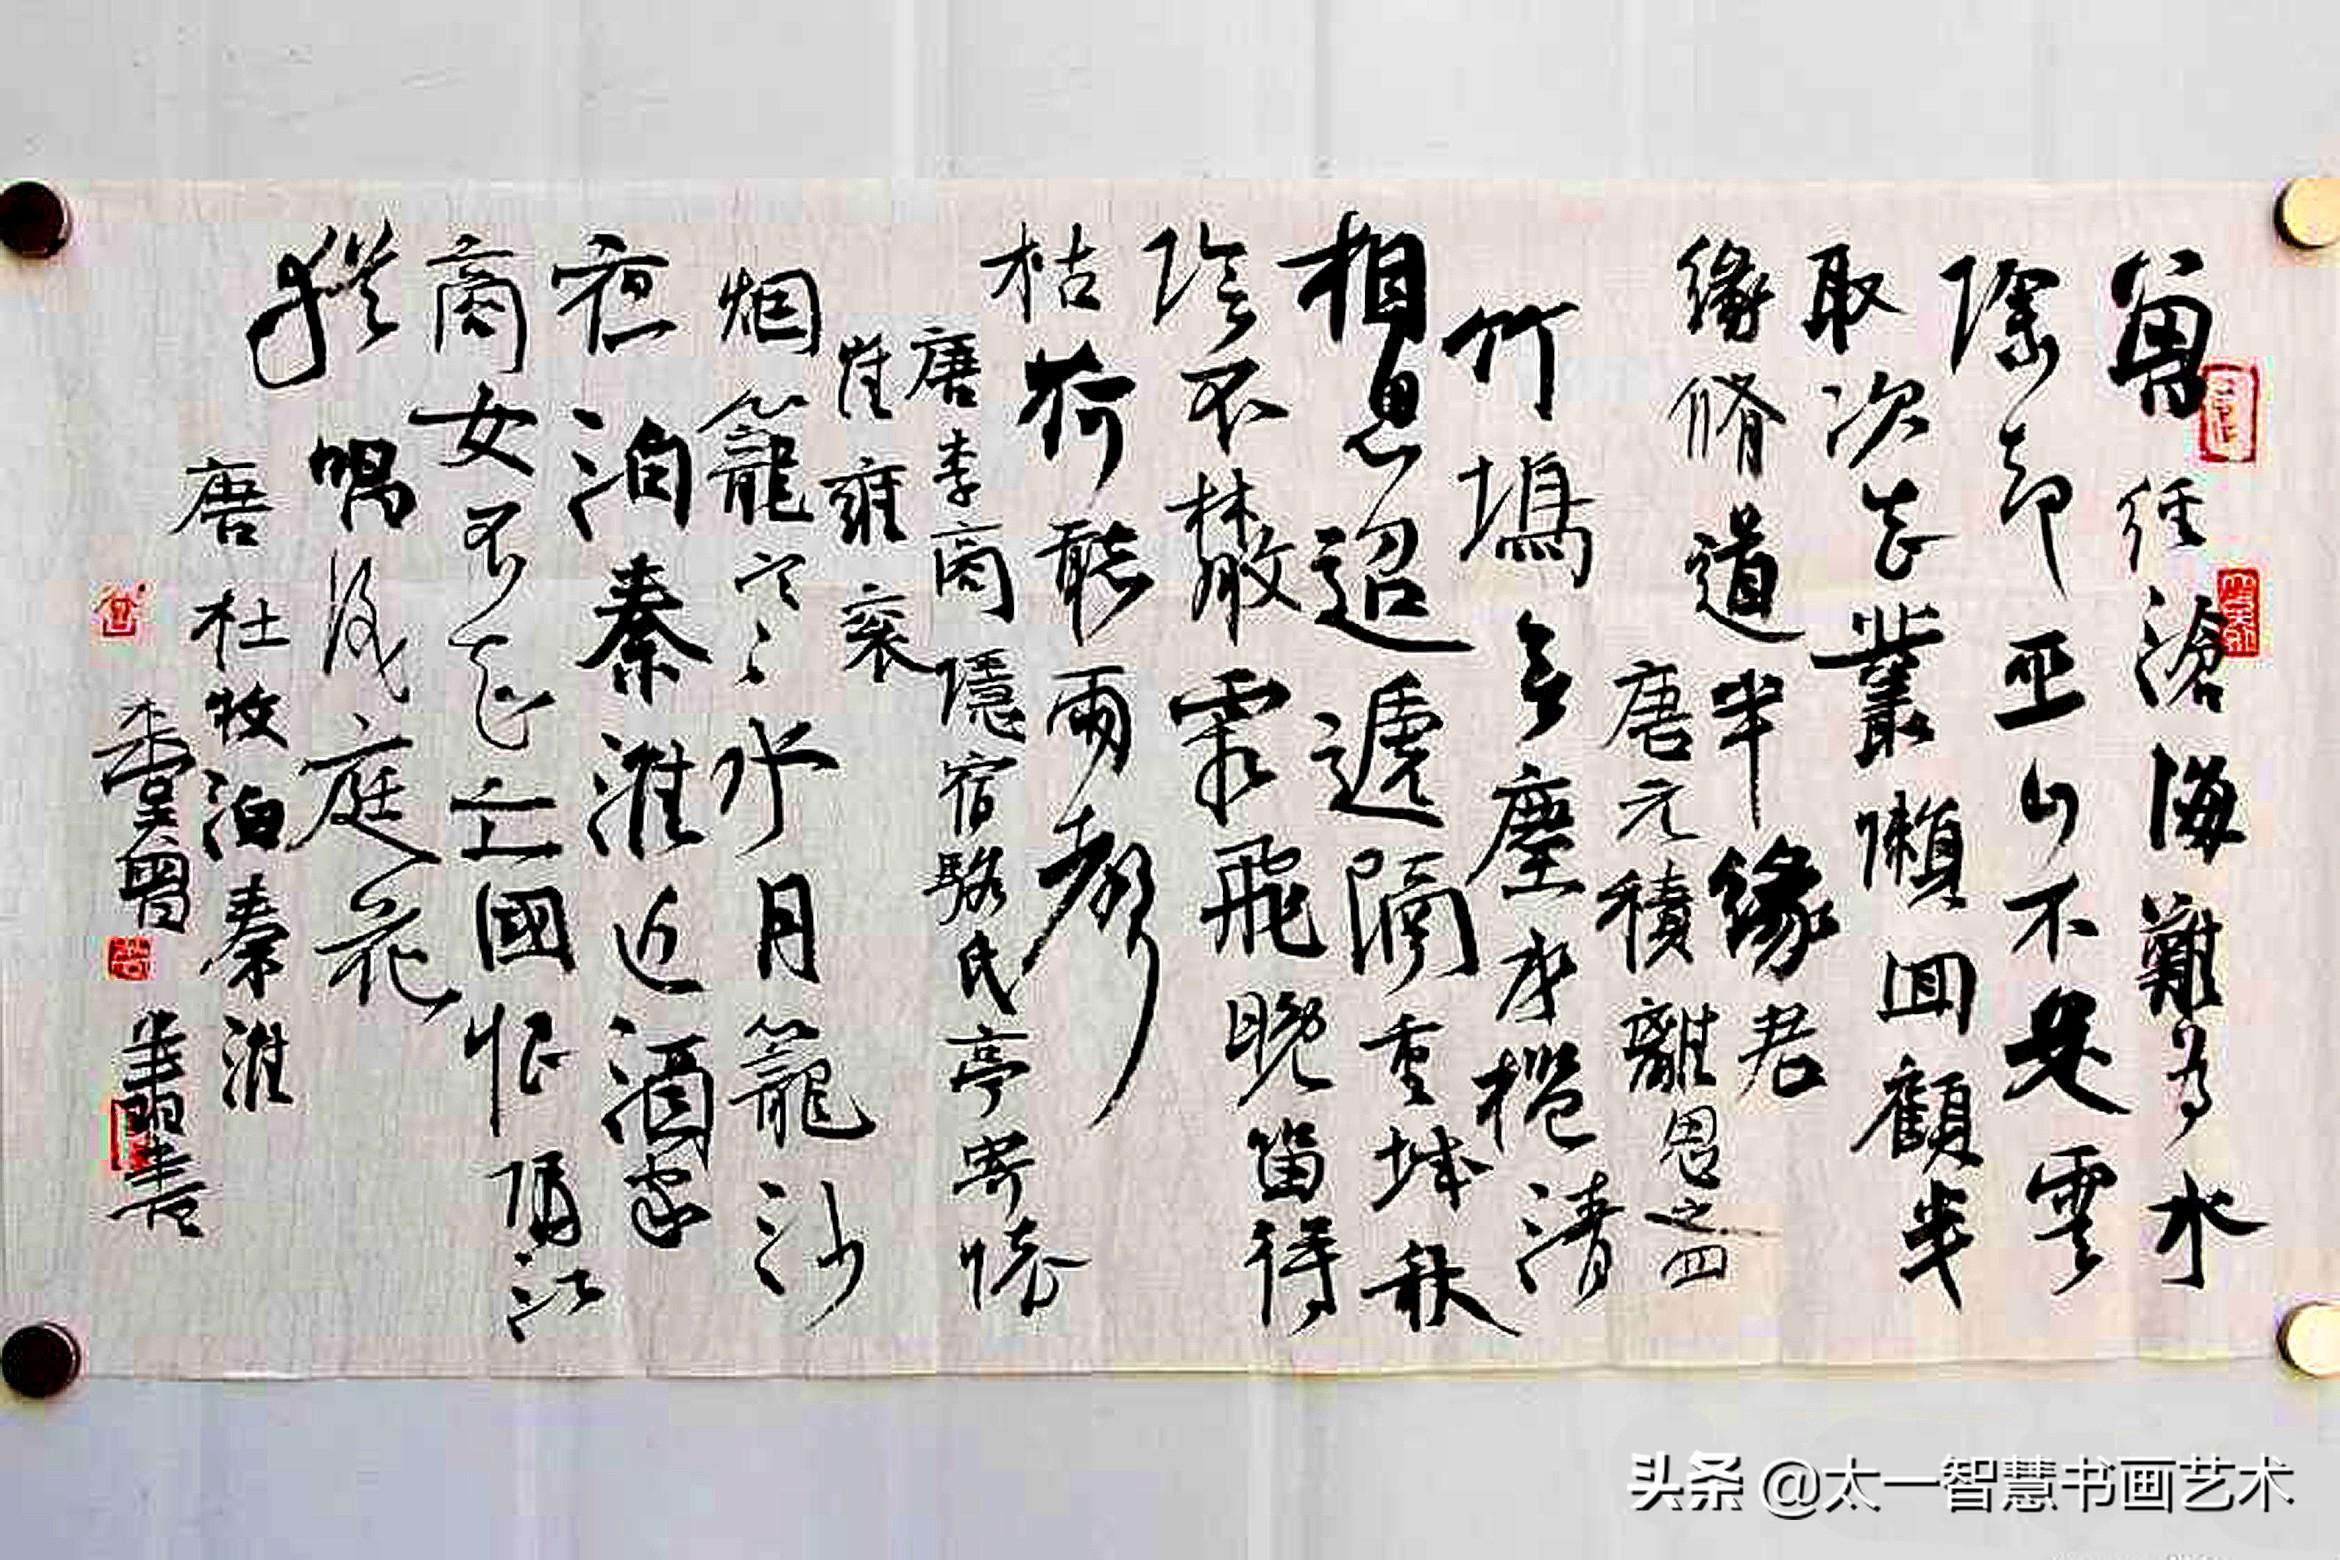 曾經滄海難為水
除却巫山不是雲
取次花叢懶回顧半
緣脩道半緣君
唐元稹離思之四
竹塢無塵水檻清
相思迢遞隔重城秋
陰不散霜飛晚留得
枯荷聽雨聲
唐李商隱宿駱氏亭寄懷
崔雍衮
烟籠寒水月籠沙
夜泊秦淮近酒家
商女不知亡國恨隔江
猶唱後庭花
唐杜牧泊秦淮
书
头条 @太一智慧书画艺术